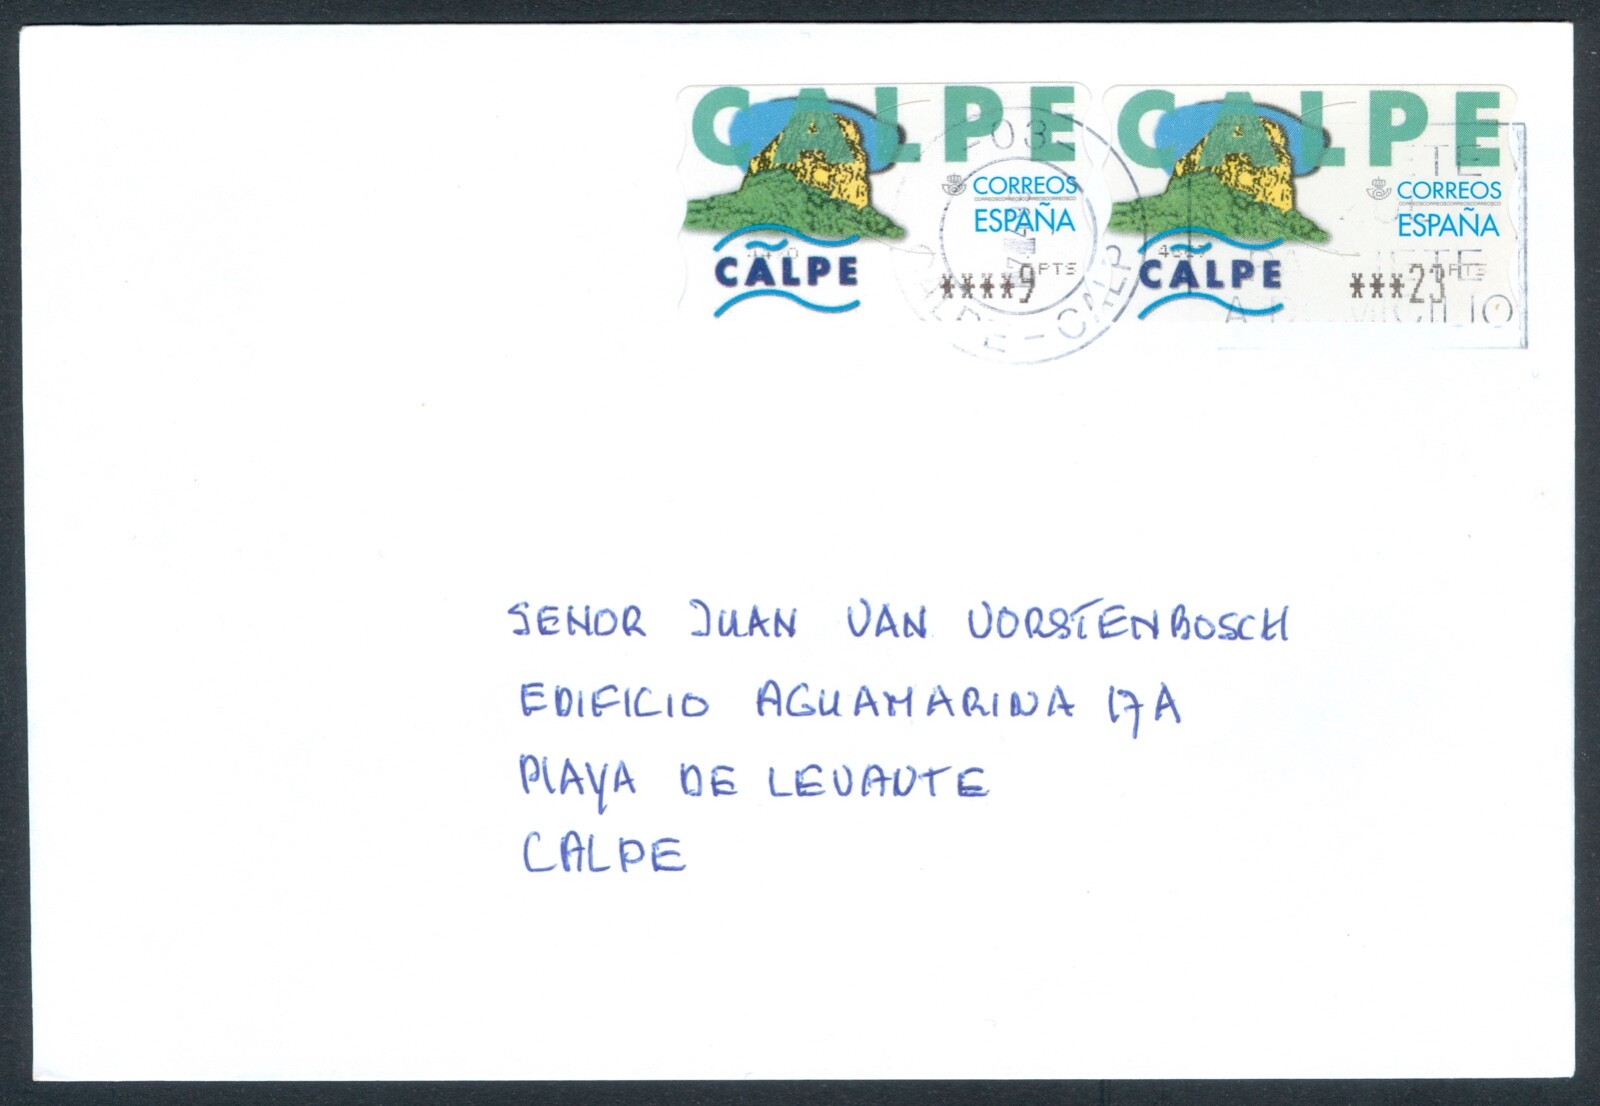 CALPE
CORREOS
ESPAÑA
CALPE
****9 PTS
CALPE
CORREOS
ESPAÑA
CALPE
***23 PTS
03
CALP
SENOR JUAN VAN VORSTENBOSCH
EDIFICIO AGUAMARINA 17A
PLAYA DE LEVANTE
CALPE